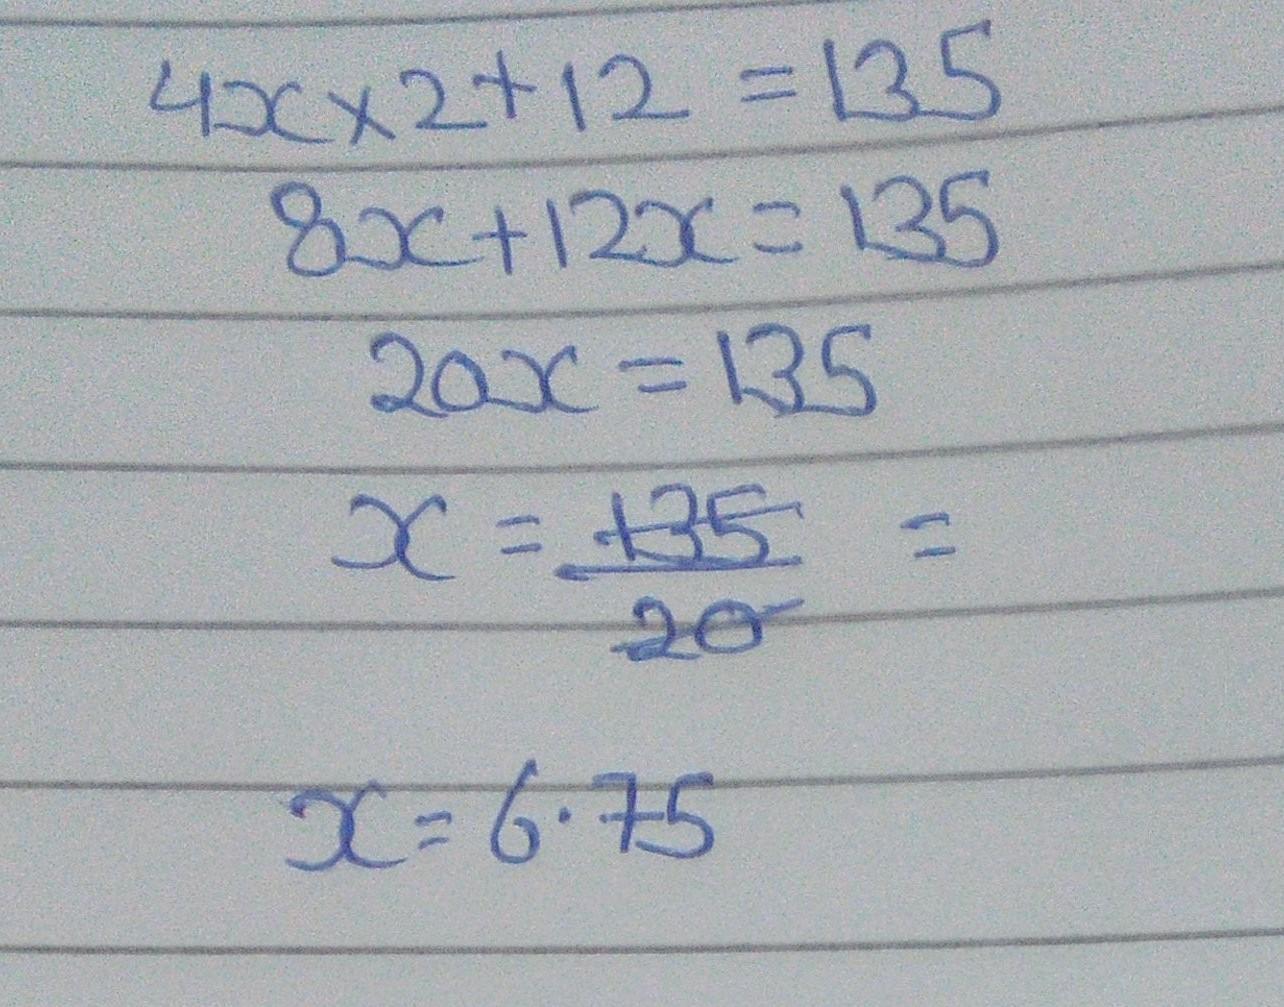 4x×2+12 = 135
8x+12x = 135
20x = 135
x = 135/20 =
x = 6.75